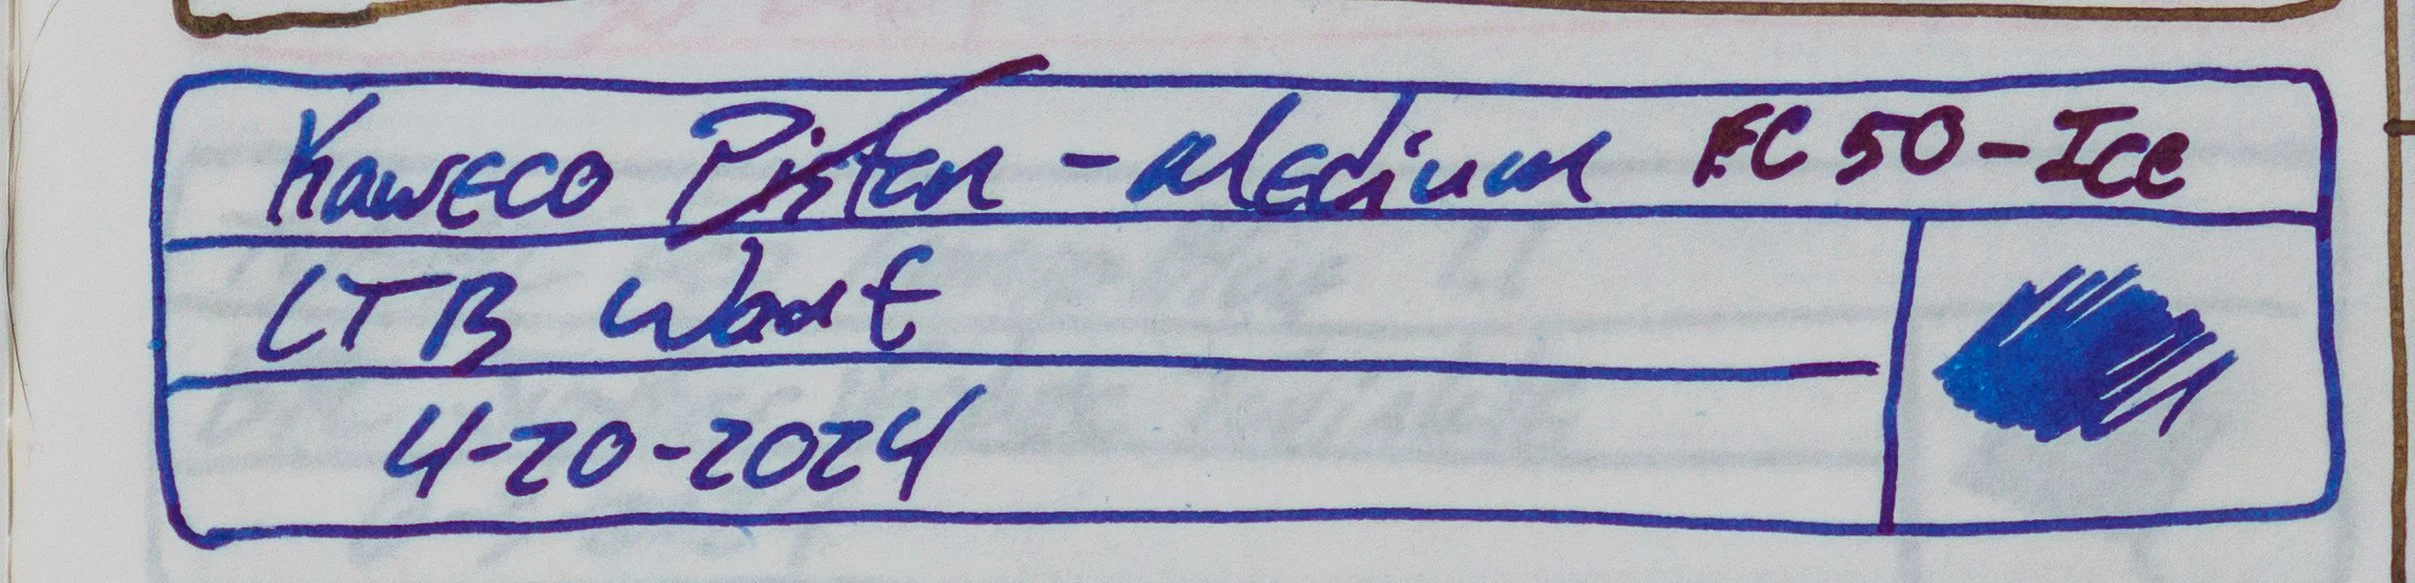 Kaweco Piston - Medium EC 50 - Ice
LTB
4-20-2024